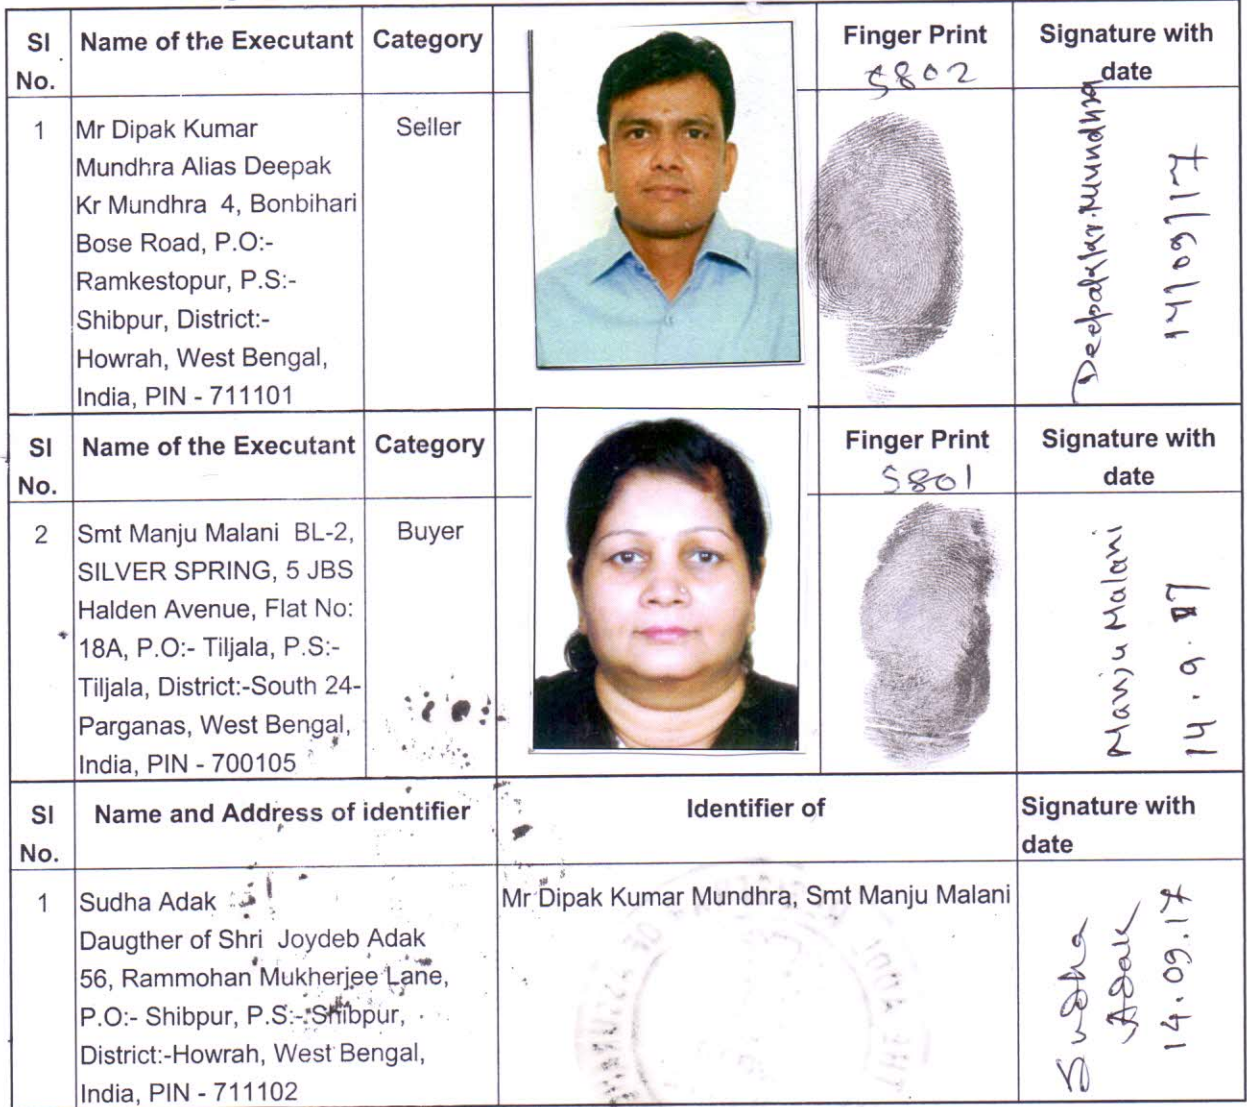 Sl No. Name of the Executant Category Finger Print Signature with date
5802
1 Mr Dipak Kumar Seller
Mundhra Alias Deepak
Kr Mundhra 4, Bonbihari
Bose Road, P.O:-
Ramkestopur, P.S:-
Shibpur, District:-
Howrah, West Bengal,
India, PIN - 711101
Deepak kr. Mundhra
14/09/17
Sl No. Name of the Executant Category Finger Print Signature with date
5801
2 Smt Manju Malani BL-2, Buyer
SILVER SPRING, 5 JBS
Halden Avenue, Flat No:
18A, P.O:- Tiljala, P.S:-
Tiljala, District:-South 24-
Parganas, West Bengal,
India, PIN - 700105
Manju Malani
14.9.17
Sl No. Name and Address of identifier Identifier of Signature with date
1 Sudha Adak Mr Dipak Kumar Mundhra, Smt Manju Malani
Daugther of Shri Joydeb Adak
56, Rammohan Mukherjee Lane,
P.O:- Shibpur, P.S:- Shibpur,
District:-Howrah, West Bengal,
India, PIN - 711102
Sudha
Adak
14.09.17